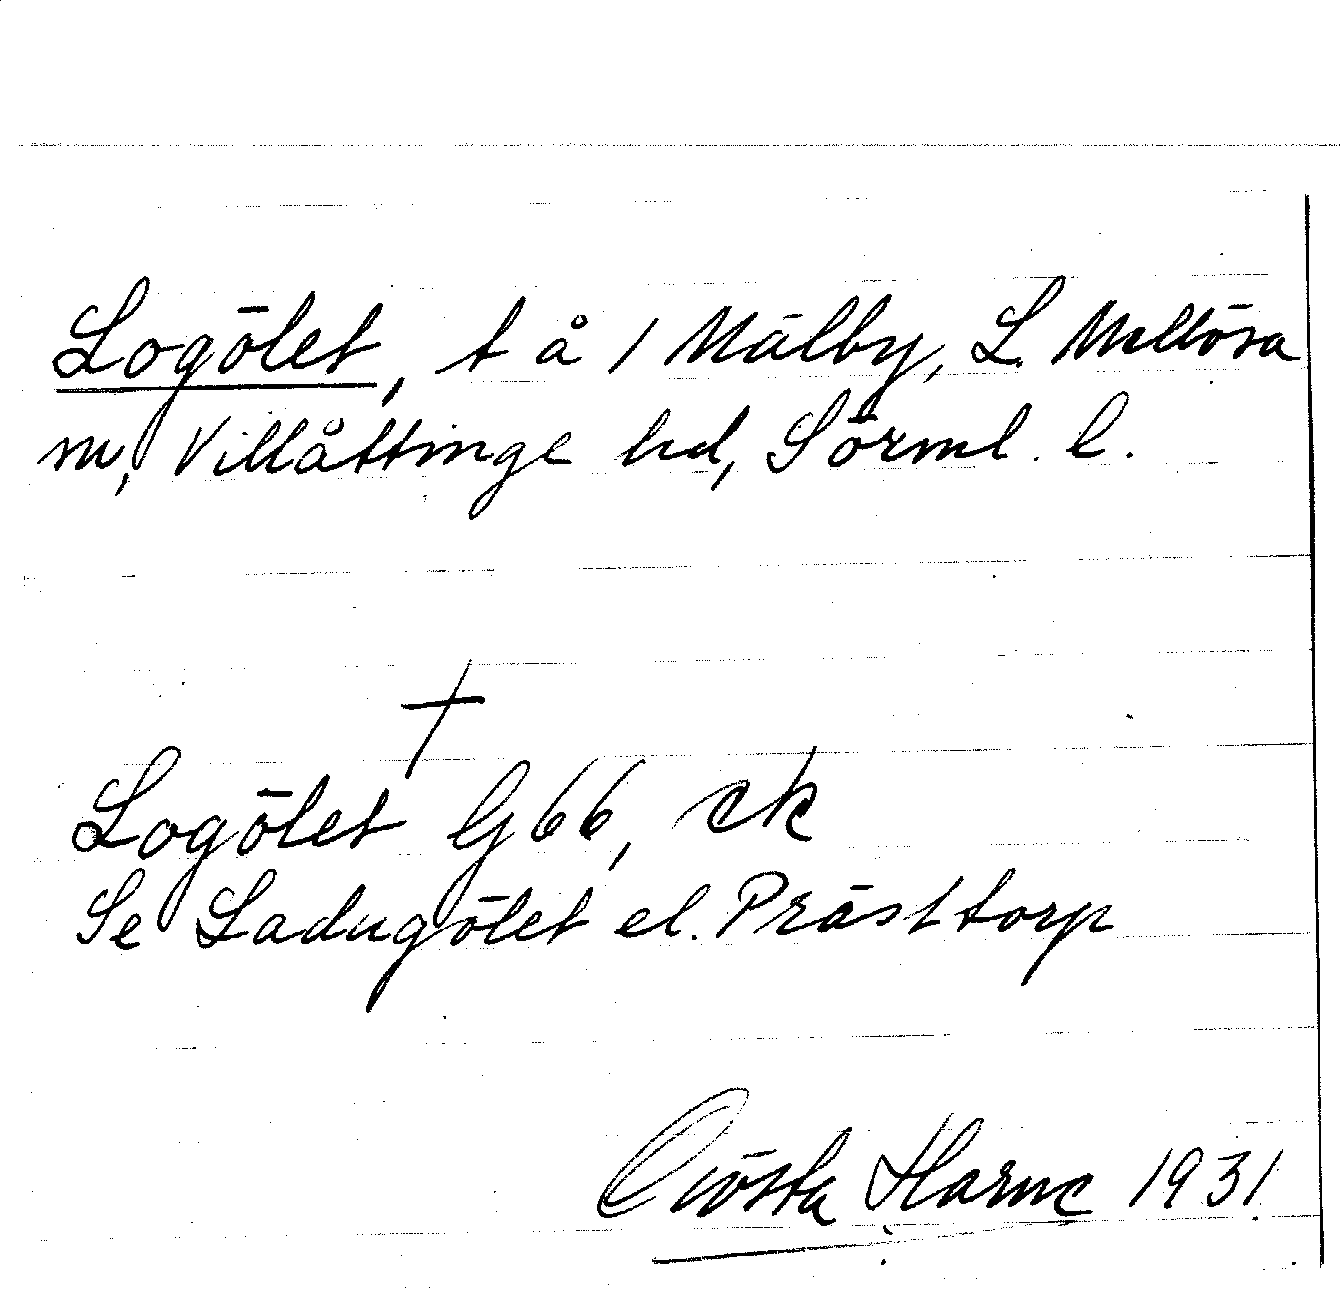 Logölet, t å 1 Mälby, L Mellösa
sn, Villåttinge hd, Sörml. l.
+
Logölet G 66, ek
Se Ladugölet el. Prästtorp
Gösta Harne 1931